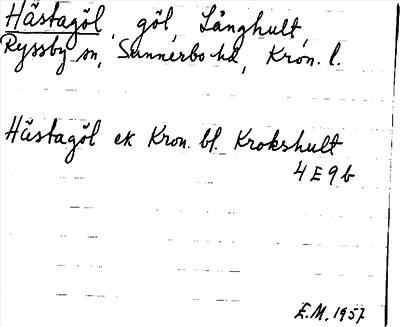 Hästagöl, göl, Långhult,
Ryssby sn, Sunnerbo hd, Kron. l.
Hästagöl ek Kron. bl. Krokshult
4E9b
E.M. 1957